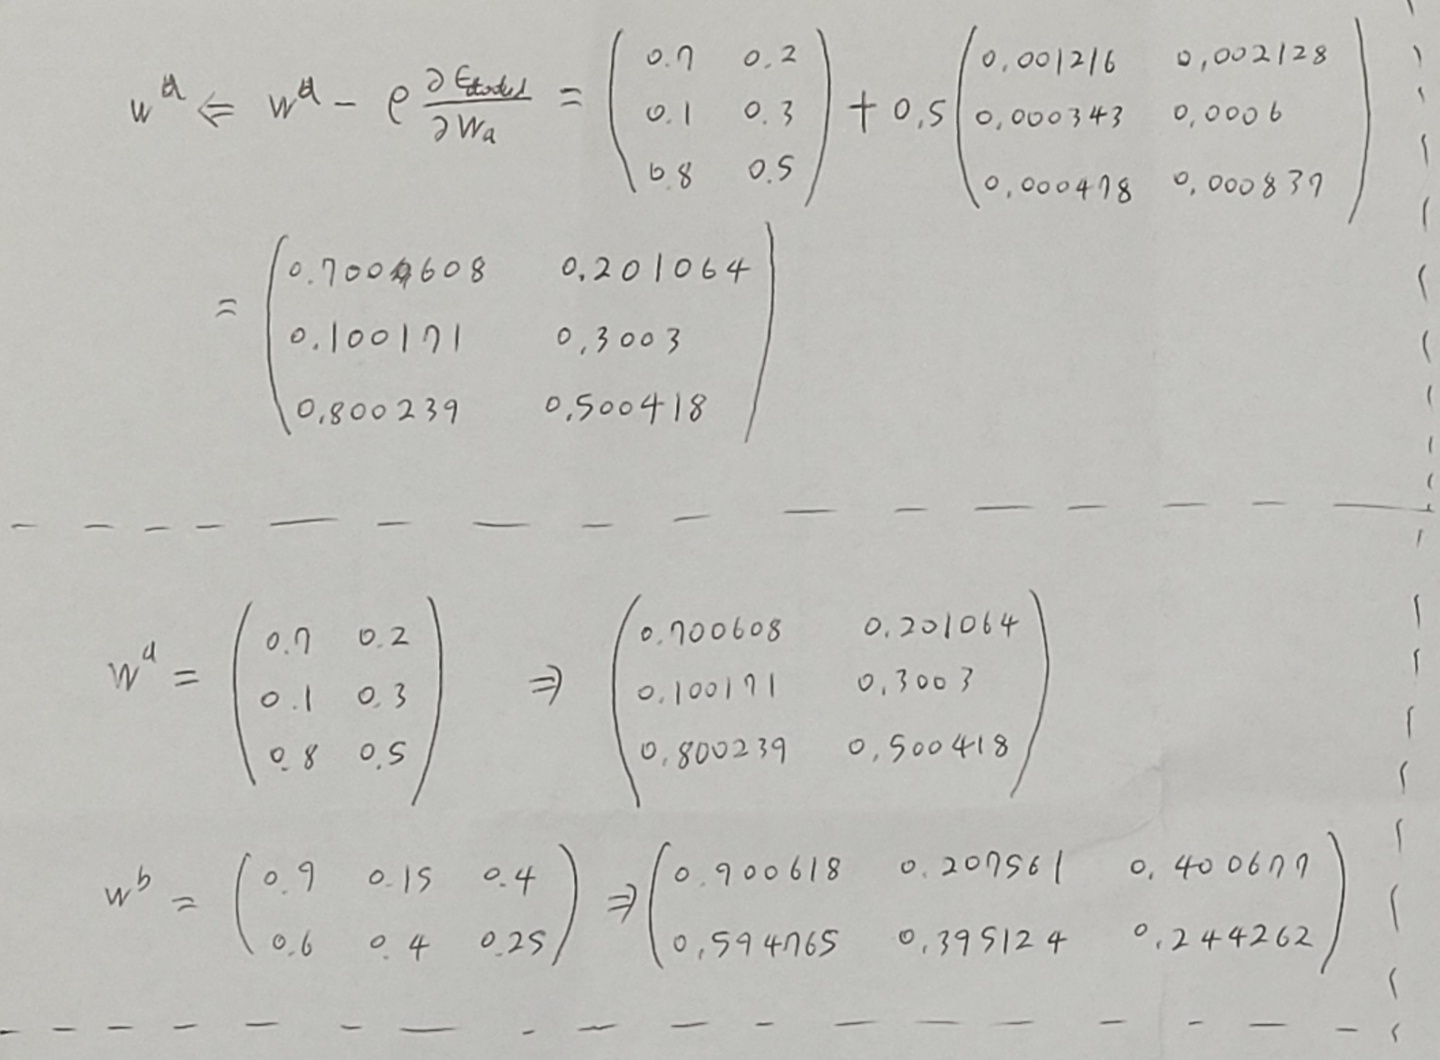 w^a ⇐ w^a - ρ ∂E_total/∂W_a = (0.7 0.2 / 0.1 0.3 / 0.8 0.5) + 0.5 (0.001216 0.002128 / 0.000343 0.0006 / 0.000478 0.000837)
= (0.700608 0.201064 / 0.100171 0.3003 / 0.800239 0.500418)
w^a = (0.7 0.2 / 0.1 0.3 / 0.8 0.5) ⇒ (0.700608 0.201064 / 0.100171 0.3003 / 0.800239 0.500418)
w^b = (0.9 0.15 0.4 / 0.6 0.4 0.25) ⇒ (0.900618 0.207561 0.400677 / 0.594765 0.395124 0.244262)